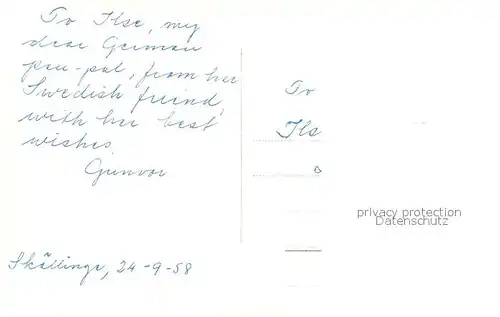 To Ilse, my
dear German
pen-pal, from her
Swedish friend,
with her best
wishes.
Gunvor
Skällinge, 24-9-58
To
Ils
privacy protection
Datenschutz